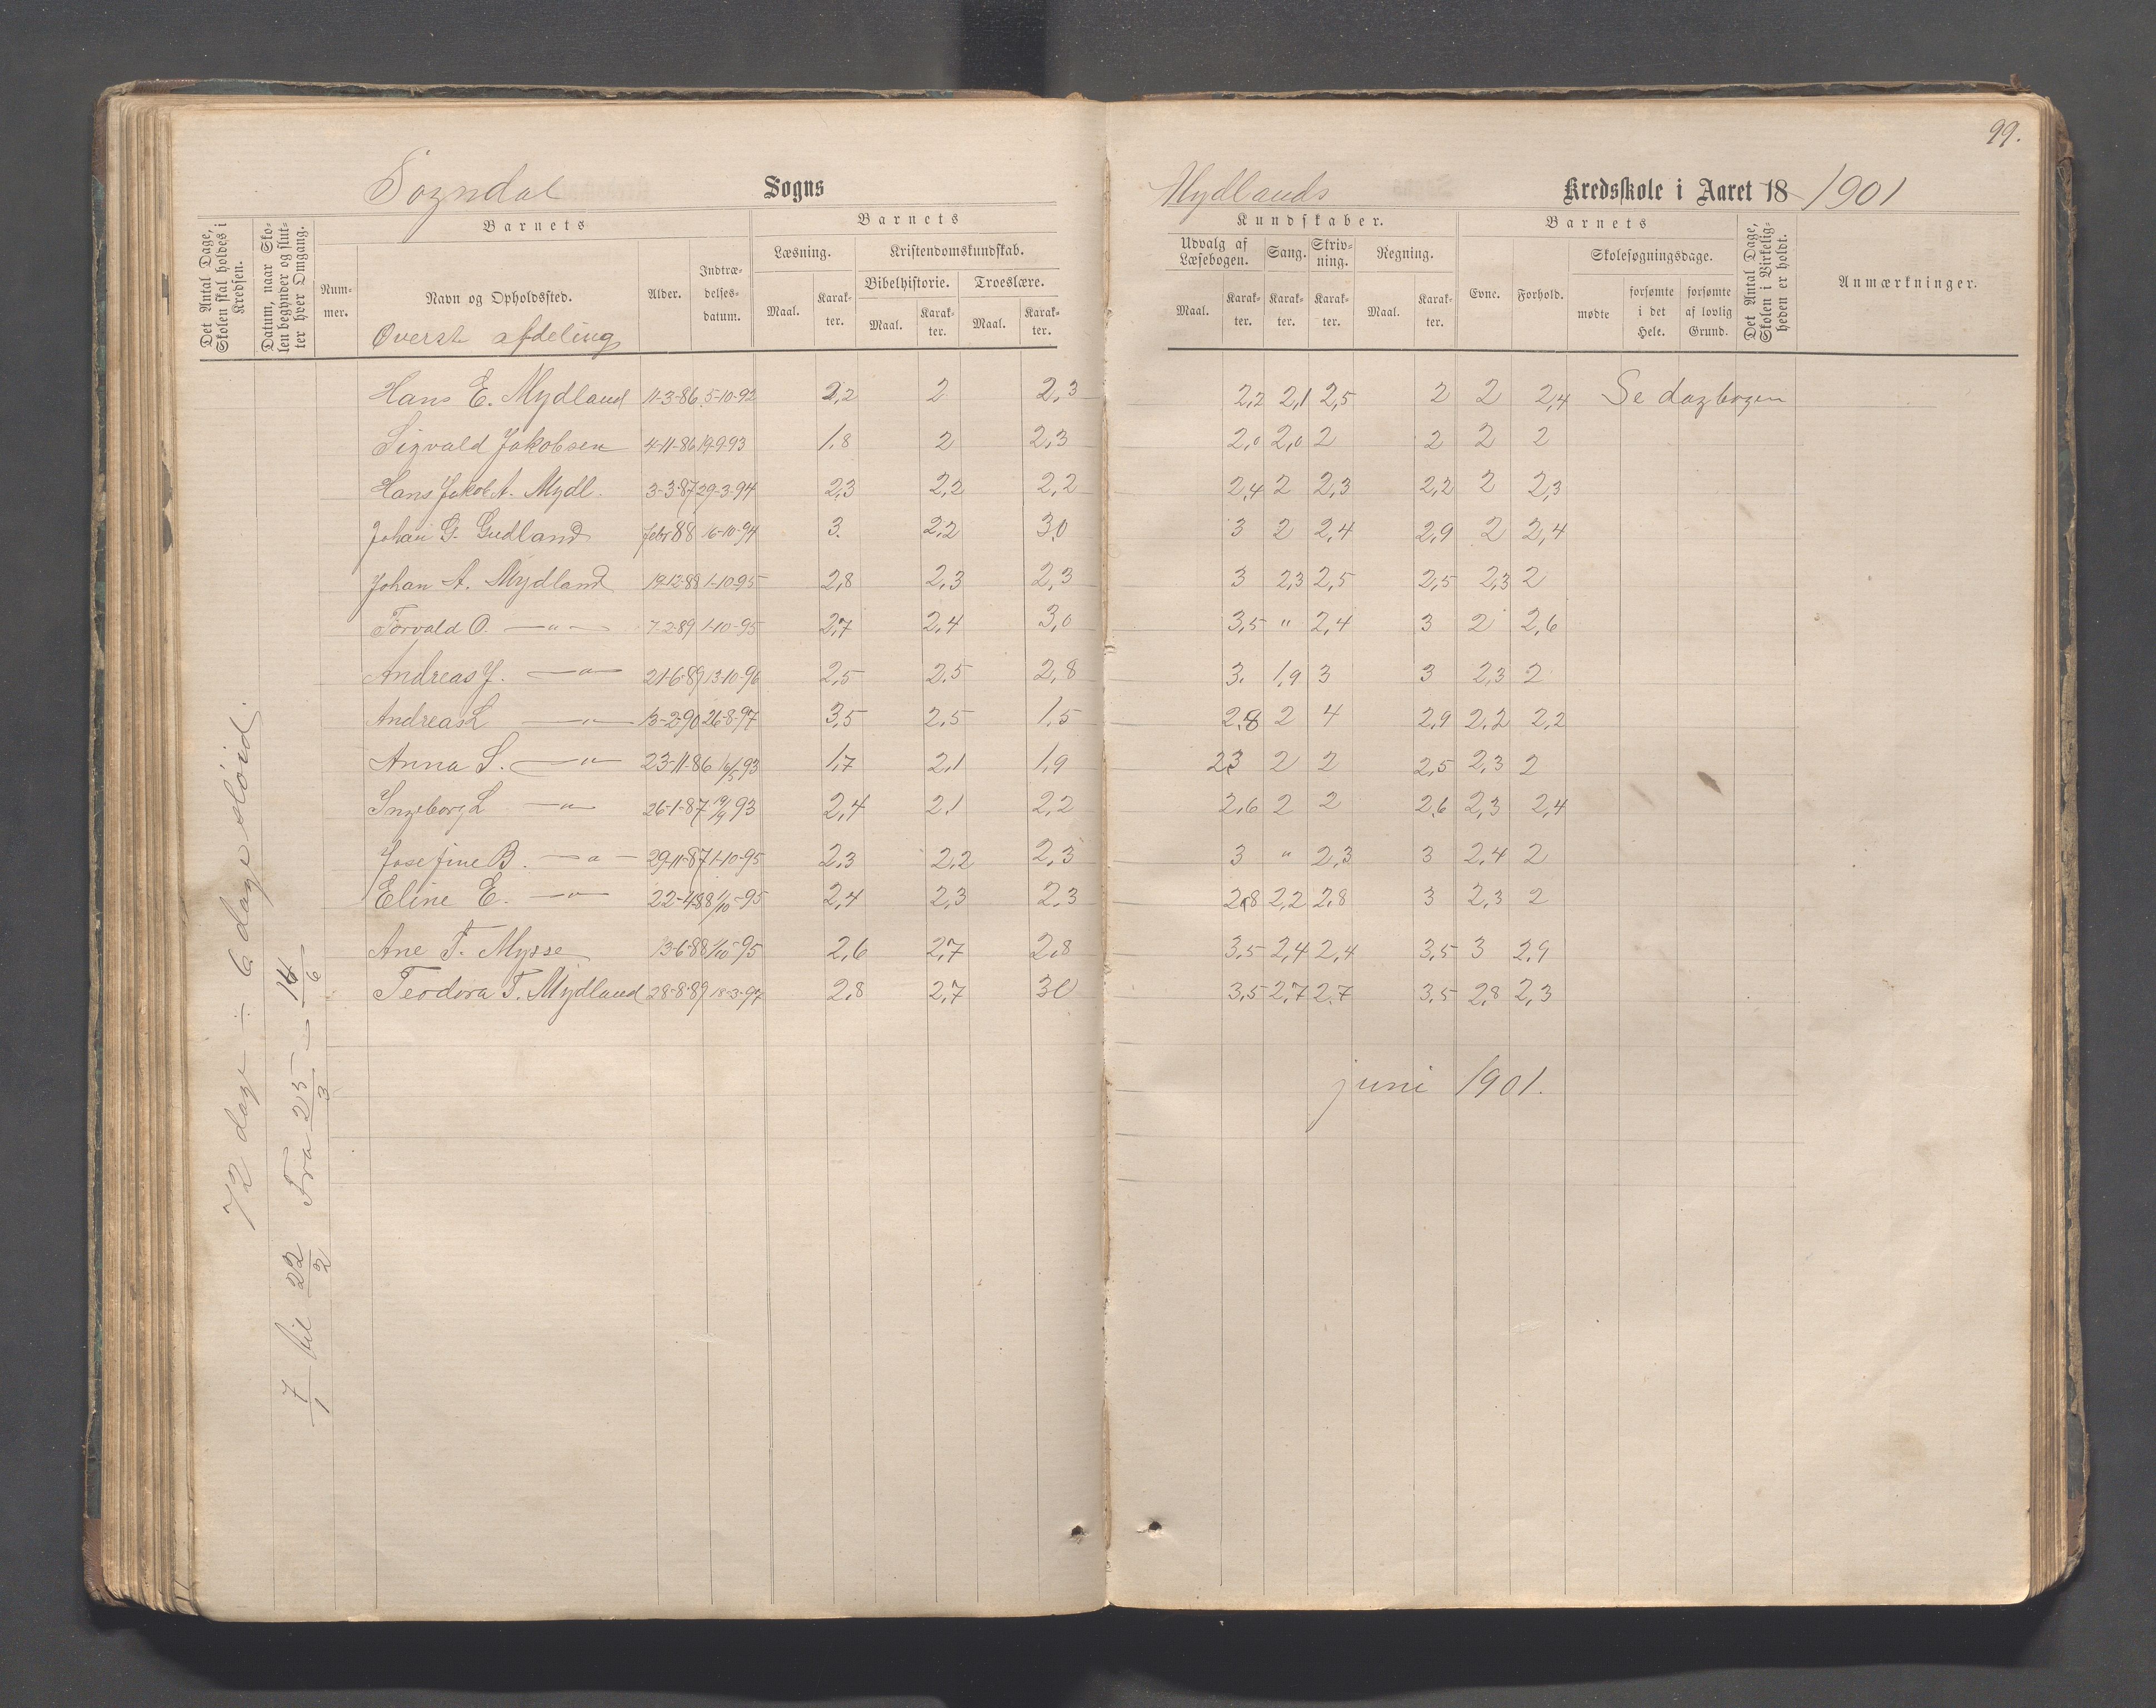 99.
Sogndal Sogns Mydlands Kredsskole i Aaret 18 1901
Det Antal Dage, Skolen skal holdes i Kredsen.
Datum, naar Skolen begynder og slutter hver Omgang.
Barnets
Nummer.
Navn og Opholdssted.
Alder.
Indtrædelsesdatum.
Barnets
Læsning.
Maal. Karakter.
Kristendomskundskab.
Bibelhistorie. Troeslære.
Maal. Karakter. Maal. Karakter.
Kundskaber.
Udvalg af Læsebogen. Sang. Skrivning. Regning.
Maal. Karakter. Karakter. Karakter. Maal. Karakter.
Barnets
Evne. Forhold.
Skolesøgningsdage.
mødte forsømte i det Hele. forsømte af lovlig Grund.
Det Antal Dage, Skolen i Virkeligheden er holdt.
Anmærkninger.
Øverste afdeling
Hans E. Mydland 11-3-86 5-10-92 2,2 2 2,3 2,2 2,1 2,5 2 2 2,4 Se dagbogen
Sigvald Jakobsen 4-11-86 19-9-93 1,8 2 2,3 2,0 2,0 2 2 2 2
Hans Jakob A. Mydl. 3-3-87 29-3-94 2,3 2,2 2,2 2,4 2 2,3 2,2 2 2,3
Johan G. Gudland febr 88 16-10-94 3. 2,2 3,0 3 2 2,4 2,9 2 2,4
Johan A. Mydland 19-12-88 1-10-95 2,8 2,3 2,3 3 2,3 2,5 2,5 2,3 2
Torvald O. —„— 7-2-89 1-10-95 2,7 2,4 3,0 3,5 „ 2,4 3 2 2,6
Andreas J. —„— 21-6-89 13-10-96 2,5 2,5 2,8 3. 1,9 3 3 2,3 2
Andreas L —„— 13-2-90 26-8-97 3,5 2,5 1,5 2,8 2 4 2,9 2,2 2,2
Anna S. —„— 23-11-86 16/5 93 1,7 2,1 1,9 2,3 2 2 2,5 2,3 2
Ingeborg L —„— 26-1-87 19/9 93 2,4 2,1 2,2 2,6 2 2 2,6 2,3 2,4
Josefine B. —„— 29-11-87 1-10-95 2,3 2,2 2,3 3 „ 2,3 3 2,4 2
Eline E. —„— 22-4-88 1/10-95 2,4 2,3 2,3 2,8 2,2 2,8 3 2,3 2
Ane T. Mysse 13-6-88 1/10-95 2,6 2,7 2,8 3,5 2,4 2,4 3,5 3 2,9
Teodora T. Mydland 28-8-89 18-3-97 2,8 2,7 3,0 3,5 2,7 2,7 3,5 2,8 2,3
juni 1901.
72 dage ÷ 6 dage sløid.
7/1 til 22/2 Fra 25/3 — 14/6